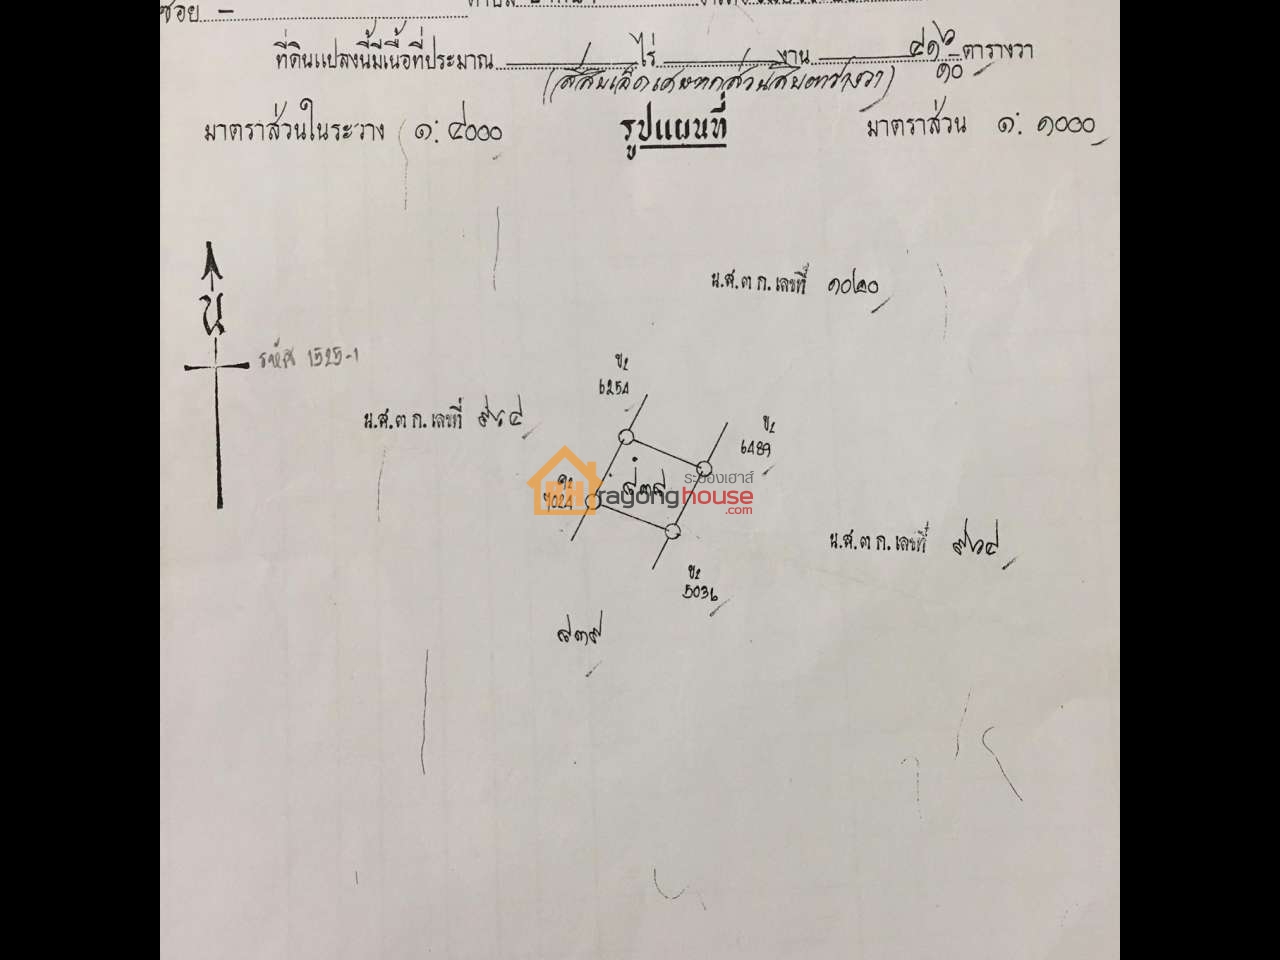 ซอย –
ที่ดินแปลงนี้มีเนื้อที่ประมาณ ไร่ งาน ๔๑ ๖/๑๐ ตารางวา
(สี่สิบเอ็ดเศษหกส่วนสิบตารางวา)
มาตราส่วนในระวาง ๑: ๔๐๐๐
รูปแผนที่
มาตราส่วน ๑: ๑๐๐๐
น
รหัส 1525-1
น.ส.๓ ก. เลขที่ ๑๐๒๐
ข2
6254
น.ส.๓ ก. เลขที่
ข2
6489
ระยองเฮาส์
rayonghouse
.com
7024
น.ส.๓ ก. เลขที่ ๙๖๔
ข2
5036
๘๓๙